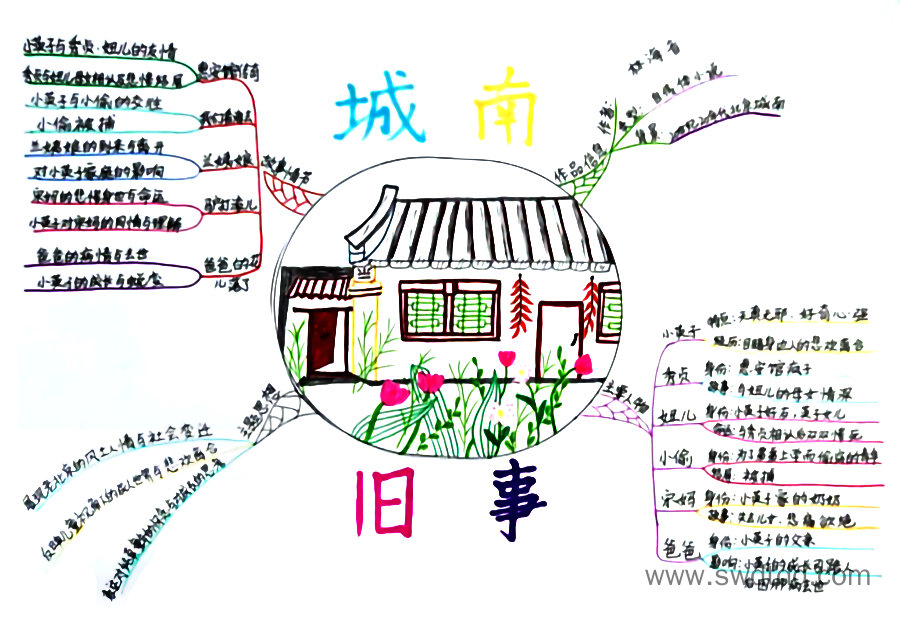 城南
旧事
作品信息
作者:
林海音
类型: 自传体小说
背景: 20世纪20年代北京城南
故事情节
惠安馆传奇
小英子与秀贞、妞儿的友情
秀贞与妞儿母女相认及悲惨结局
我们看海去
小英子与小偷的交往
小偷被捕
兰姨娘
兰姨娘的到来与离开
对小英子家庭的影响
驴打滚儿
宋妈的悲惨身世与命运
小英子对宋妈的同情与理解
爸爸的花
儿落了
爸爸的病情与去世
小英子的成长与蜕变
主要人物
小英子
特点: 天真无邪、好奇心强
经历: 目睹身边人的悲欢离合
秀贞
身份: 惠安馆疯子
故事: 与妞儿的母女情深
妞儿
身份: 小英子好友, 秀贞女儿
命运: 与秀贞相认后双双惨死
小偷
身份: 为了弟弟上学而偷窃的青年
结局: 被捕
宋妈
身份: 小英子家的奶妈
故事: 失去儿女, 悲痛欲绝
爸爸
身份: 小英子的父亲
影响: 小英子的成长引路人
后因肺病去世
主题思想
展现老北京的风土人情与社会变迁
反映儿童视角下的成人世界与悲欢离合